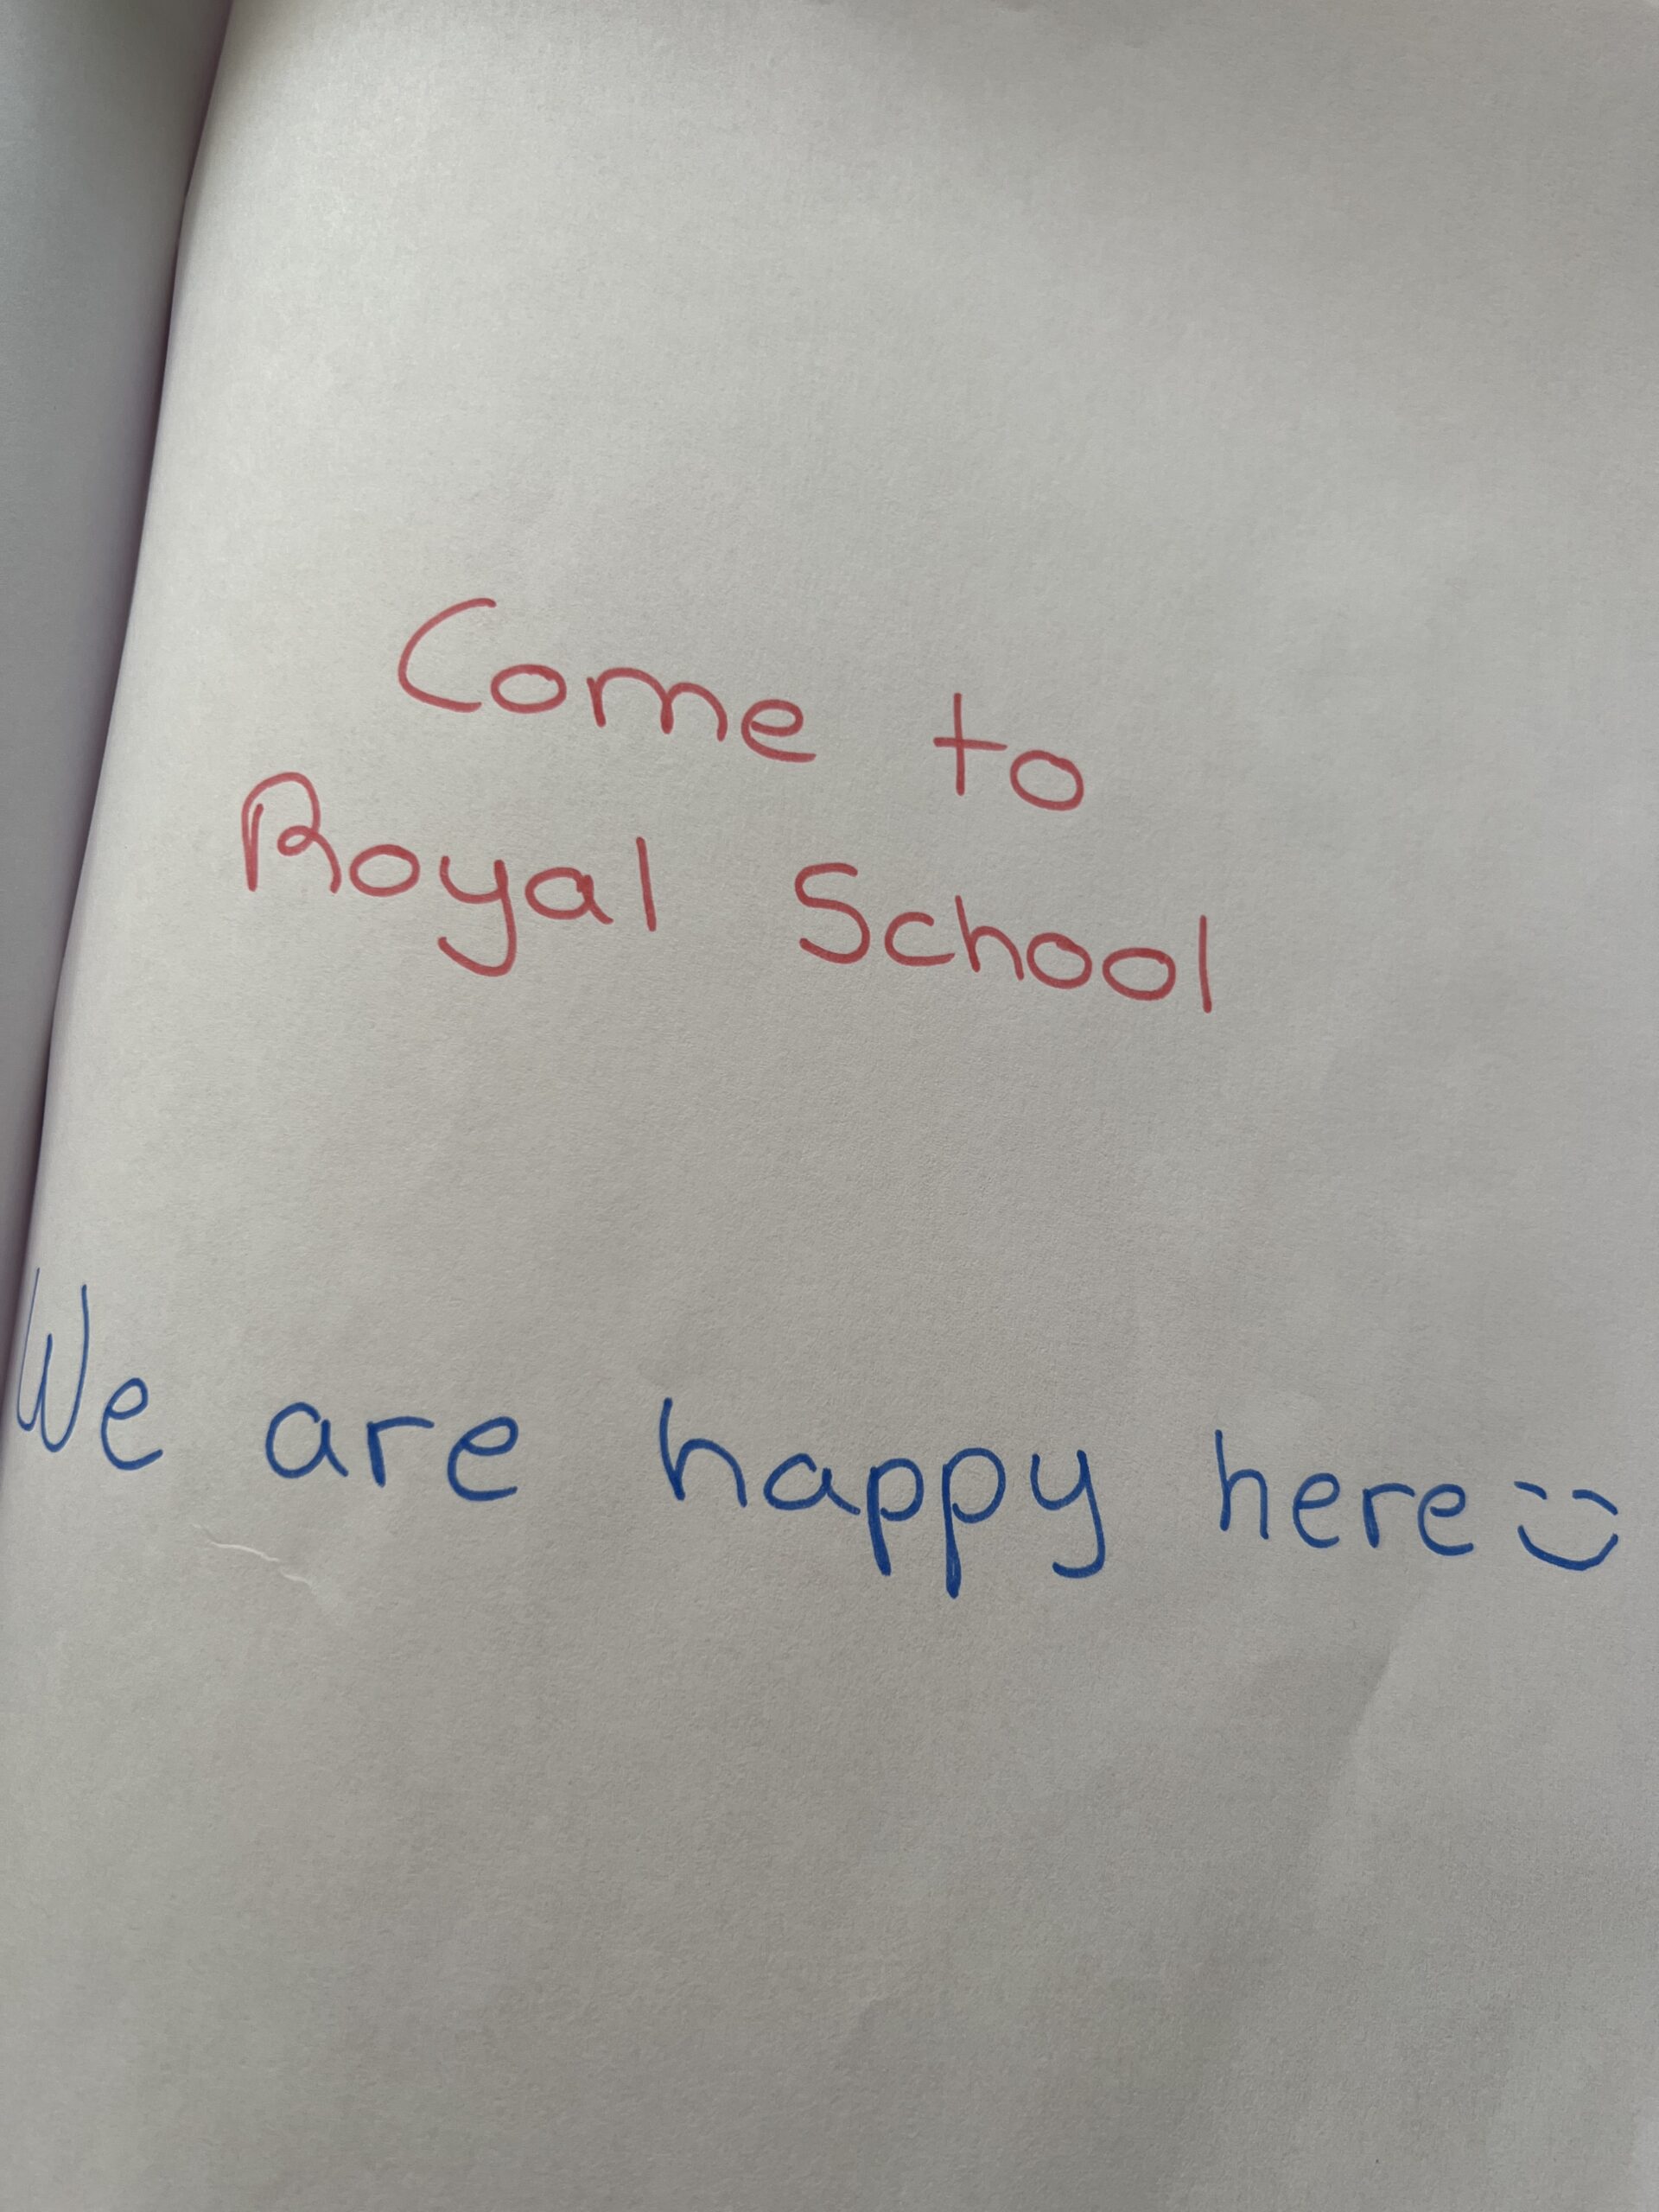 Come to
Royal School
We are happy here